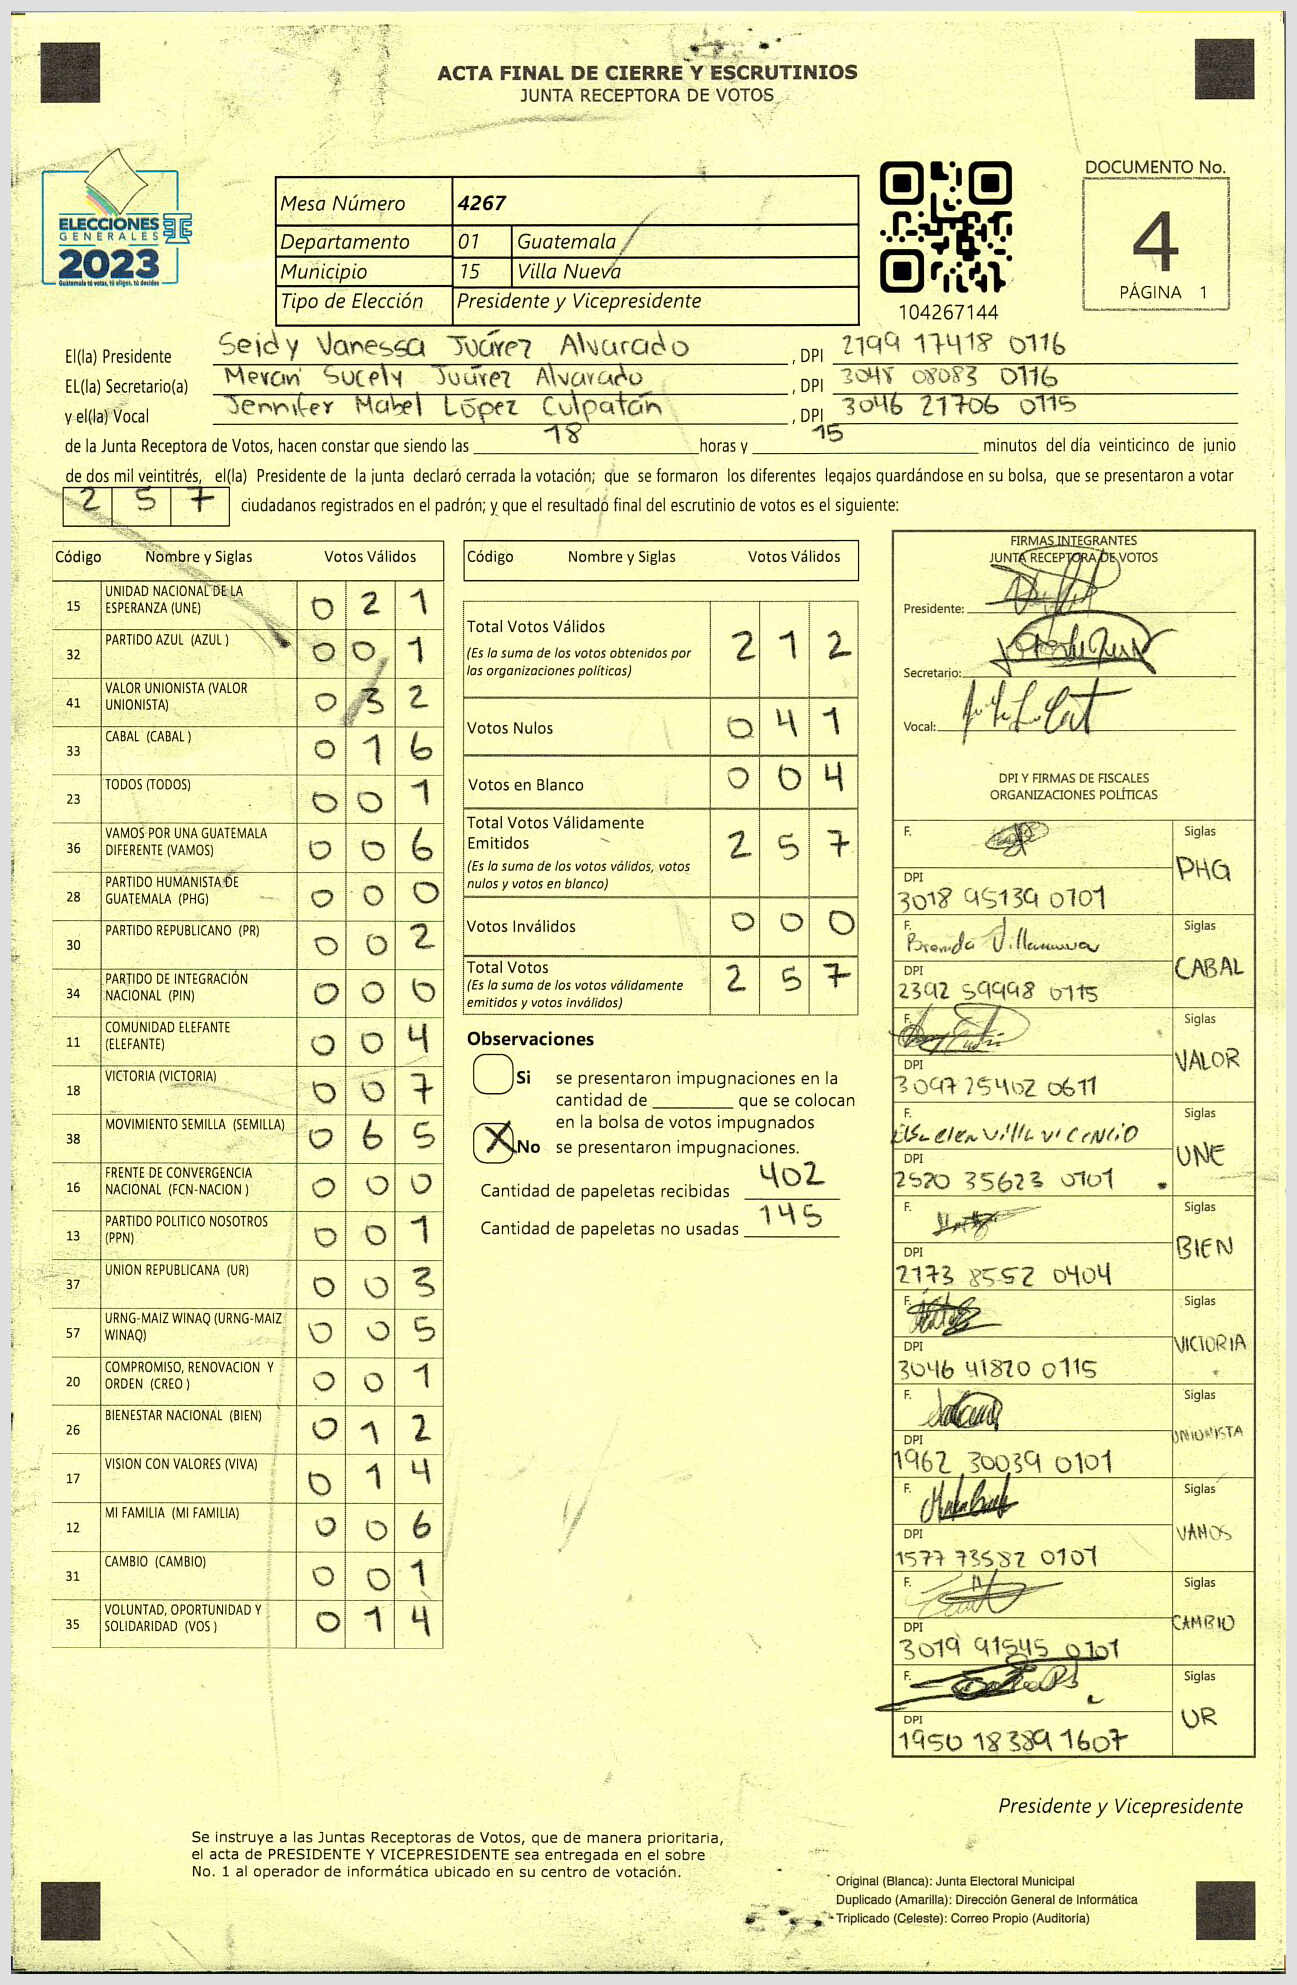 ACTA FINAL DE CIERRE Y ESCRUTINIOS
JUNTA RECEPTORA DE VOTOS
ELECCIONES
GENERALES
2023
Guatemala tú votas, tú eliges, tú decides
Mesa Número 4267
Departamento 01 Guatemala
Municipio 15 Villa Nueva
Tipo de Elección Presidente y Vicepresidente
104267144
DOCUMENTO No.
4
PÁGINA 1
El(la) Presidente Seidy Vanessa Juárez Alvarado , DPI 2199 17418 0116
EL(la) Secretario(a) Meran Sucely Juárez Alvarado , DPI 3048 08083 0116
y el(la) Vocal Jennifer Mabel López Culpatán , DPI 3046 21706 0115
de la Junta Receptora de Votos, hacen constar que siendo las 18 horas y 15 minutos del día veinticinco de junio
de dos mil veintitrés, el(la) Presidente de la junta declaró cerrada la votación; que se formaron los diferentes legajos guardándose en su bolsa, que se presentaron a votar
2 5 7 ciudadanos registrados en el padrón; y que el resultado final del escrutinio de votos es el siguiente:
Código Nombre y Siglas Votos Válidos
15 UNIDAD NACIONAL DE LA
ESPERANZA (UNE) 0 2 1
32 PARTIDO AZUL (AZUL ) 0 0 1
41 VALOR UNIONISTA (VALOR
UNIONISTA) 0 3 2
33 CABAL (CABAL ) 0 1 6
23 TODOS (TODOS) 0 0 1
36 VAMOS POR UNA GUATEMALA
DIFERENTE (VAMOS) 0 0 6
28 PARTIDO HUMANISTA DE
GUATEMALA (PHG) 0 0 0
30 PARTIDO REPUBLICANO (PR) 0 0 2
34 PARTIDO DE INTEGRACIÓN
NACIONAL (PIN) 0 0 0
11 COMUNIDAD ELEFANTE
(ELEFANTE) 0 0 4
18 VICTORIA (VICTORIA) 0 0 7
38 MOVIMIENTO SEMILLA (SEMILLA) 0 6 5
16 FRENTE DE CONVERGENCIA
NACIONAL (FCN-NACION ) 0 0 0
13 PARTIDO POLITICO NOSOTROS
(PPN) 0 0 1
37 UNION REPUBLICANA (UR) 0 0 3
57 URNG-MAIZ WINAQ (URNG-MAIZ
WINAQ) 0 0 5
20 COMPROMISO, RENOVACION Y
ORDEN (CREO ) 0 0 1
26 BIENESTAR NACIONAL (BIEN) 0 1 2
17 VISION CON VALORES (VIVA) 0 1 4
12 MI FAMILIA (MI FAMILIA) 0 0 6
31 CAMBIO (CAMBIO) 0 0 1
35 VOLUNTAD, OPORTUNIDAD Y
SOLIDARIDAD (VOS ) 0 1 4
Código Nombre y Siglas Votos Válidos
Total Votos Válidos 2 1 2
(Es la suma de los votos obtenidos por
las organizaciones políticas)
Votos Nulos 0 4 1
Votos en Blanco 0 0 4
Total Votos Válidamente
Emitidos 2 5 7
(Es la suma de los votos válidos, votos
nulos y votos en blanco)
Votos Inválidos 0 0 0
Total Votos 2 5 7
(Es la suma de los votos válidamente
emitidos y votos inválidos)
Observaciones
Si se presentaron impugnaciones en la
cantidad de ________ que se colocan
en la bolsa de votos impugnados
X No se presentaron impugnaciones.
Cantidad de papeletas recibidas 402
Cantidad de papeletas no usadas 145
FIRMAS INTEGRANTES
JUNTA RECEPTORA DE VOTOS
Presidente:
Secretario:
Vocal:
DPI Y FIRMAS DE FISCALES
ORGANIZACIONES POLÍTICAS
F. Siglas
PHG
DPI
3018 95139 0701
F. Brenda Villanueva Siglas
CABAL
DPI
2392 59998 0115
F. Siglas
VALOR
DPI
3097 25402 0611
F. Siglas
UNE
DPI
2520 35623 0101
F. Siglas
BIEN
DPI
2173 8552 0404
F. Siglas
VICTORIA
DPI
3046 41820 0115
F. Siglas
UNIONISTA
DPI
1962 30039 0101
F. Siglas
VAMOS
DPI
1577 73582 0101
F. Siglas
CAMBIO
DPI
3019 91545 0101
F. Siglas
UR
DPI
1950 18389 1607
Presidente y Vicepresidente
Se instruye a las Juntas Receptoras de Votos, que de manera prioritaria,
el acta de PRESIDENTE Y VICEPRESIDENTE sea entregada en el sobre
No. 1 al operador de informática ubicado en su centro de votación.
Original (Blanca): Junta Electoral Municipal
Duplicado (Amarilla): Dirección General de Informática
Triplicado (Celeste): Correo Propio (Auditoría)